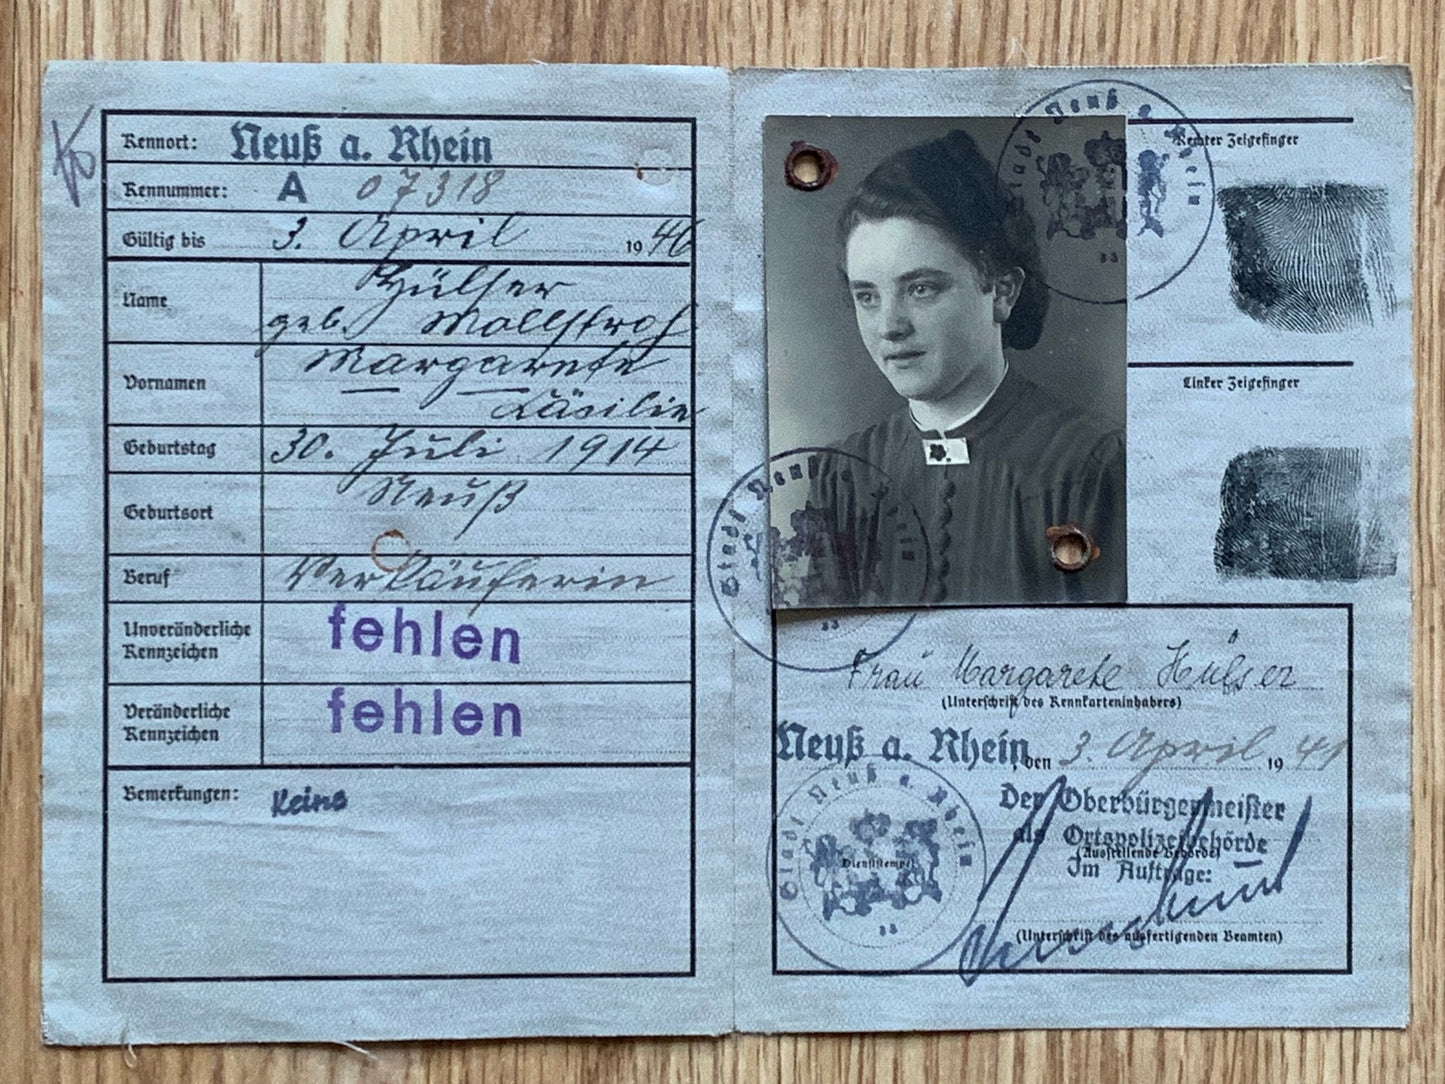 Kennort: Neuß a. Rhein
Kennummer: A 07318
Gültig bis 3. April 1946
Name Hülser
geb.
Vornamen Margarete
Käsilie
Geburtstag 30. Juli 1914
Geburtsort Neuß
Beruf Verkäuferin
Unveränderliche
Kennzeichen fehlen
Veränderliche
Kennzeichen fehlen
Bemerkungen: Keine
Stadt Neuß a. Rhein
33
Rechter Zeigefinger
Linker Zeigefinger
Stadt Neuß a. Rhein
33
Frau Margarete Hülser
(Unterschrift des Kennkarteninhabers)
Neuß a. Rhein, den 3. April 1941
Der Oberbürgermeister
als Ortspolizeibehörde
(Ausstellende Behörde)
Im Auftrage:
Stadt Neuß a. Rhein
Dienststempel
33
(Unterschrift des ausfertigenden Beamten)